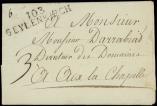 103
GEYLENKIRCH
A Monsieur
Monsieur Darrabiad
Directeur des Domaines
A Aix la Chapelle